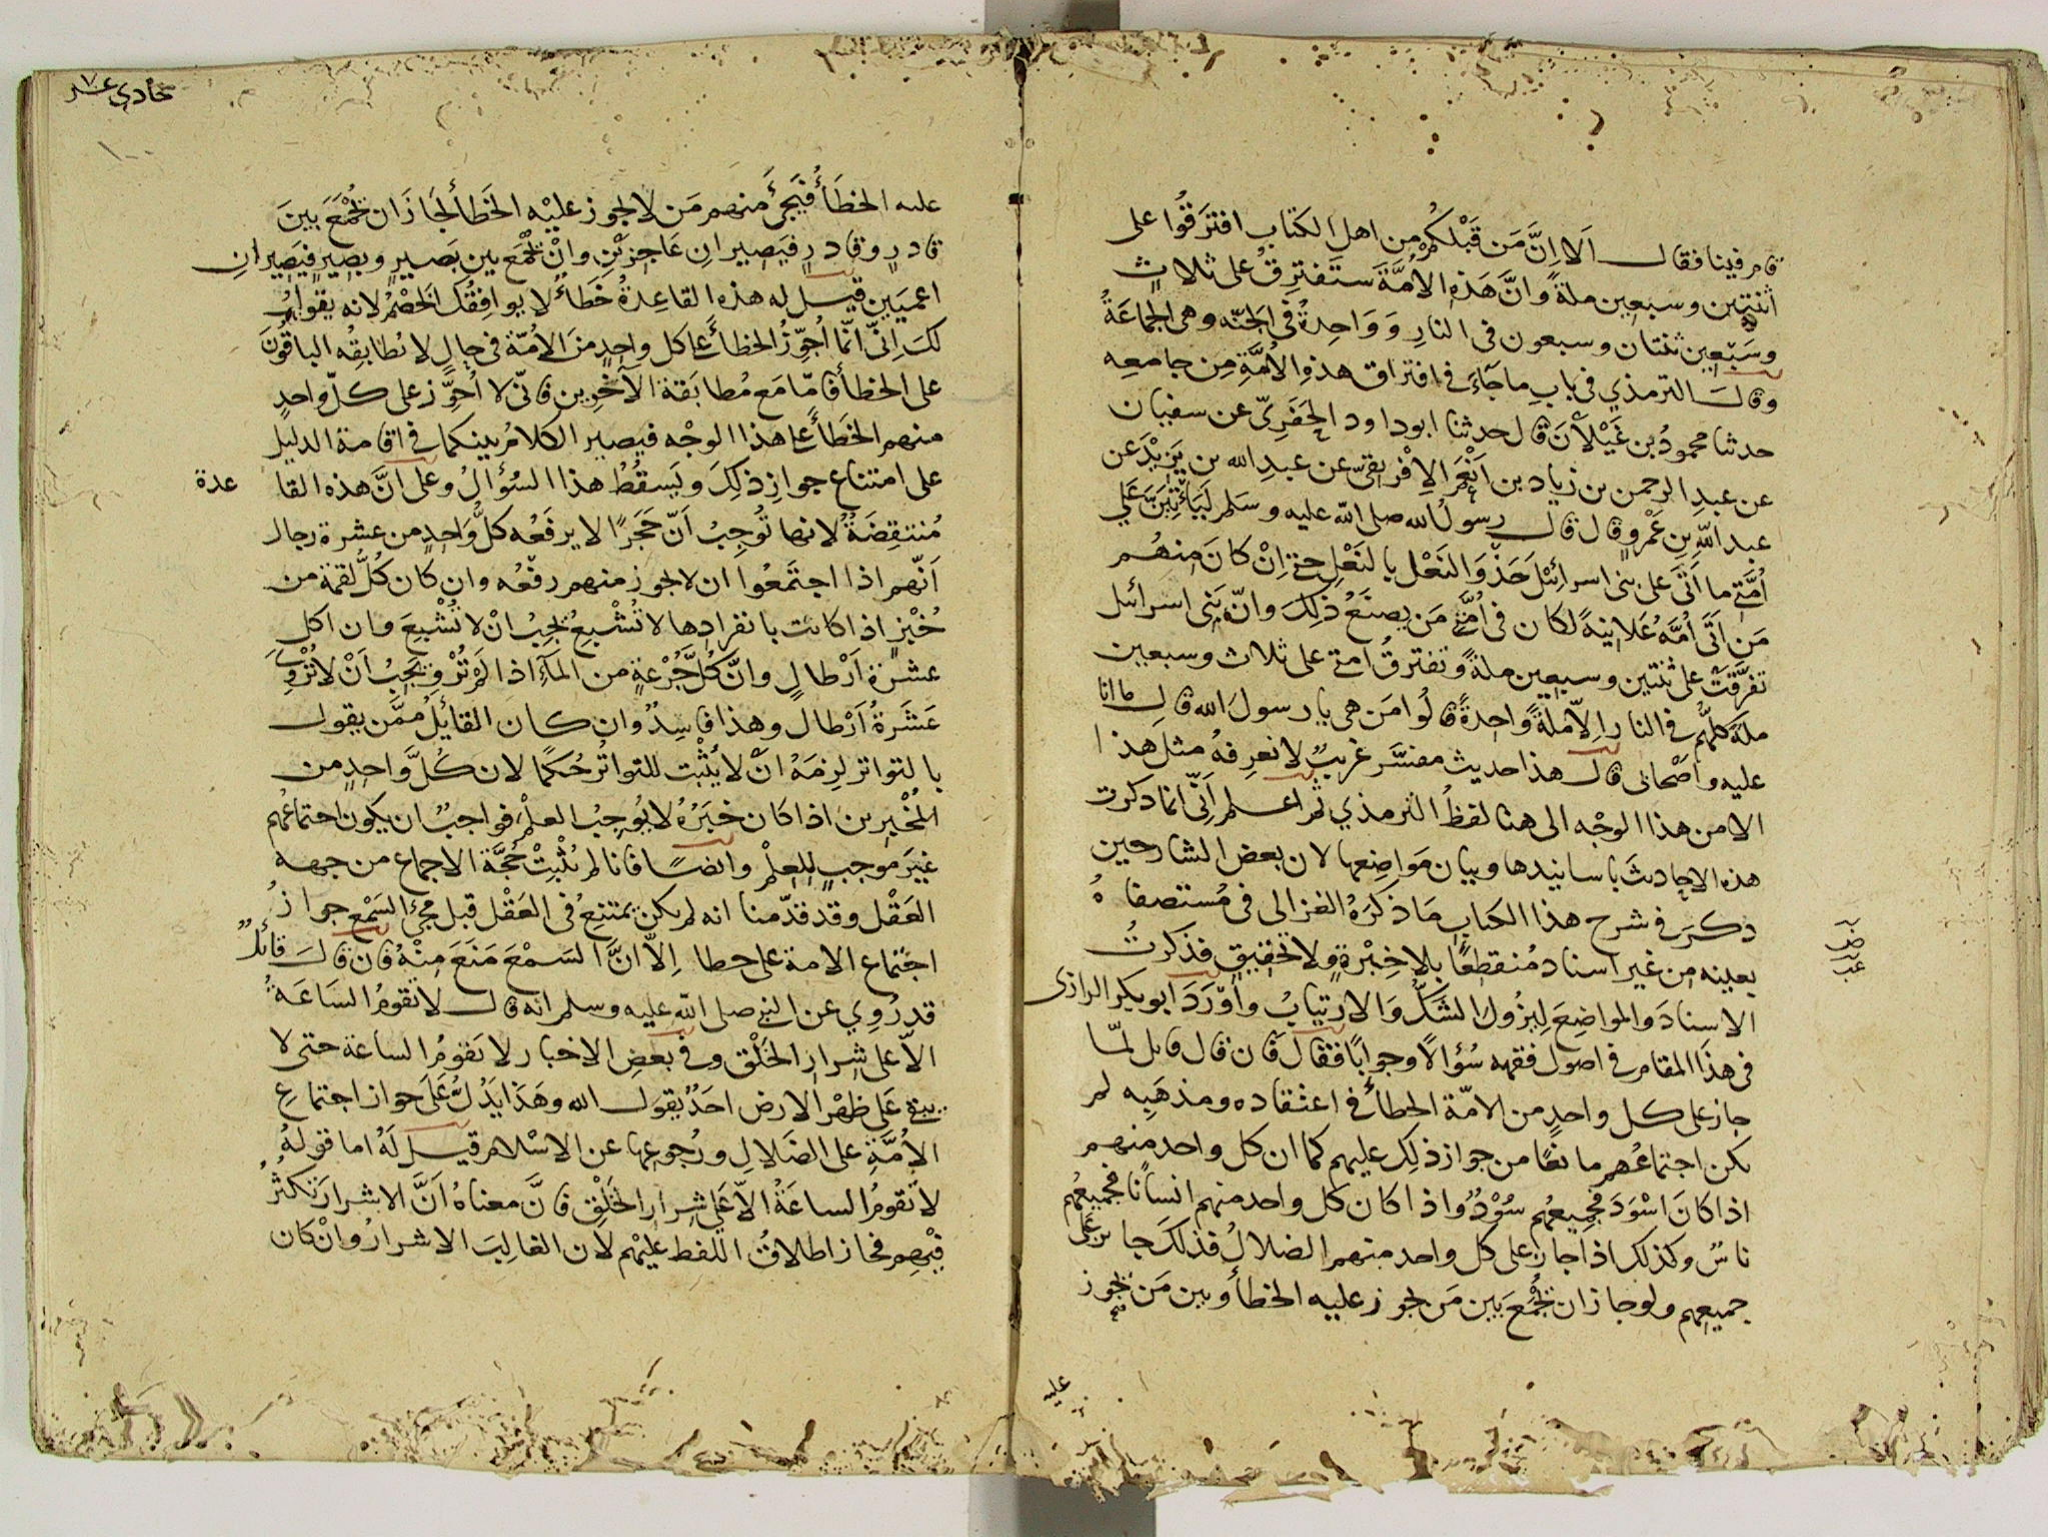 قام فينا فقال ألا إنَّ مَن قَبْلكُمْ من اهل الكتاب افترَقُوا على
ثنتين وسبعين ملةً وانَّ هَذِهِ الامَّةَ ستَفترِقُ على ثلاثٍ
وسَبْعِين ثنتان وسبعون فى النارِ وَوَاحِدةٌ فى الجنّه وهى الجماعَةُ
وقالَ الترمذي فى باب ماجَاءَ فى افتراق هذهِ الأُمَّةِ مِن جامعِه
حدثنا محمودُ بن غَيْلاَنَ قال حدثنا ابو داود الحَفَرِىّ عن سفيان
عن عبدِ الرحمن بن زياد بن أَنْعُمَ الاِفْريقىّ عن عبدِ الله بن يَزِيْدَ عن
عبد اللهِ بنِ عَمْروٍ قال قال رسولُ الله صلى الله عليه وسَلم لَيَأتِيَنَّ عَلَى
أُمَّتى ما أتَىَ على بنى اسرائيْلَ حَذْوَ النَعْل بالنَعْلِ حتى اِنْ كانَ مِنهُم
مَن أتَى أُمَّهُ عَلانِيَةً لكان فى أُمَّتى مَن يصنَعُ ذلِكَ وانّ بَنِى اسرائل
تفرَّقَتْ على ثنتين وسبعين ملةً وتفترقُ امتى على ثلاث وسبعين
ملةً كلُّهم فى النارِ اِلاّ ملةً واحِدةً قالُوا مَن هى يا رسولَ الله قال ما انا
عليه واصْحابى قال هذا حديث مفسَّر غريبٌ لا نعرِفهُ مثل هذا
الا من هذا الوجْه الى هنا لفظُ الترمذي ثم اعلم اَنّى انما ذكرت
هذه الاحادِثَ باسانيدها وبيان مَواضِعها لان بعض الشارحين
ذكرَ فى شرح هذا الكتاب مَا ذكَرَهُ الغزالى فى مُستصفاهُ
بعينه من غير اسناد مُنقطعًا بلا خِبْرةٍ ولا تحقيقٍ فذكرتُ
الاسنادَ والمواضِعَ لِيزُولَ الشكُّ وَالارتيابُ وأوْرَدَ ابو بكر الرازى
فى هذَا المقام فى اصول فقهه سُؤالاً وجوابًا فقالَ فان قال قائل لمّا
جازَ على كل واحدٍ من الامّة الخطأُ فى اعتقاده ومذهَبِه لم
يكن اجتماعُهم مانعًا من جواز ذلك عليهم كما ان كل واحد منهم
اذا كانَ اسْوَدَ فجميعُهم سُوْدٌ واذا كان كل واحد منهم انسانًا فجميعهم
ناسٌ وكذلك اذا جازَ على كل واحد منهم الضلالُ فذلكَ جائز على
جميعهم ولو جاز ان تُجْمَعَ بين مَن يجوز عليه الخطأُ وبين مَن يجوز
عليه
حادى عشر
عليه الخطأُ فيَجئَ منهم مَن لا يجوز عليْه الخَطأُ لجَازَ ان تُجْمَعَ بينَ
قادرٍ وقادرٍ فيَصِيرانِ عَاجِزَيْنِ وانْ تُجْمَعَ بين بَصيرٍ وبصِيرٍ فيَصِيرانِ
اعميَين قيل له هذه القاعِدةُ خَطَأٌ لا يوافِقُكَ الخَصْمُ لانه يقول
لكَ اِنىّ انّما أُجَوّزُ الخطأَ على كل واحدٍ منَ الأمّة فى حالٍ لا يُطابِقُه الباقُونَ
على الخطأ فامّا مَع مُطابَقة الآخَرِين فانّى لا أُجَوّز على كلّ واحدٍ
منهم الخطأَ على هذا الوجْه فيصير الكلامُ بينكما فى اقامة الدليل
على امتناع جوازِ ذلِكَ ويَسقُطُ هذا السُؤالُ وعلى أنَّ هذه القا عدة
مُنتقِضَةٌ لانها تُوجِبُ أنّ حَجَرًا لا يرفَعُه كلُّ وَاحِدٍ من عشرة رجال
أنّهم اذا اجتمَعُوا ان لا يجوز منهم رفعُه وان كان كُلُّ لقمة من
خُبْزٍ اذا كانت بانفرادِها لا تُشْبِعُ يجِبُ انْ لا تُشْبِعَ وان اكل
عشرَةَ اَرْطالٍ وانَّ كُلَّ جُرْعةٍ من المَآءِ اذا لم تُرْوِ يَجِبُ اَنْ لا تُرْوِىَ
عَشَرَةُ أَرْطالٍ وهذا فاسِدٌ وان كان القائِلُ ممَّن يقول
بالتواتر لزِمَهُ انْ لا يُثْبِت للتواتُر حُكمًا لان كُلَّ واحِدٍ من
المُخْبِرِينَ اذا كان خبَرُهُ لا يُوجِبُ العلْمَ فواجِبٌ ان يكون اجتماعُهم
غيرَ موجبٍ للعِلْم وايضًا فانا لم نُثْبِتْ حُجَّةَ الاجماع من جهه
العَقْل وقد قدّمنا انه لم يكن يمتنِعُ فى العَقْل قبل مجئ السَمْعِ جوازُ
اجتماع الامة على خطا اِلاّ انَّ السَمْعَ مَنَعَ مِنْهُ فان قالَ قائلٌ
قد رُوِيَ عن النبى صلى الله عليه وسلم انه قال لا تقومُ السَاعَةُ
الاّ على شِرارِ الخَلْق وفى بعضِ الاخبار لا تقومُ الساعة حتى لا
يبقى عَلى ظهْر الارض احَدٌ يقول الله وهَذَا يَدُلُّ عَلَى جواز اجتماعِ
الأُمَّةِ على الضَلالِ ورُجوعها عن الاسْلام قيل لَهُ اما قولهُ
لا تقومُ الساعَةُ الاّ عَلى شِرارِ الخَلْقِ فانَّ معناهُ أنَّ الاشرارَ تكثُرُ
فيهم فجاز اطلاقُ اللفظ عليْهم لان الغالِبَ الاشرارُ وانْ كان